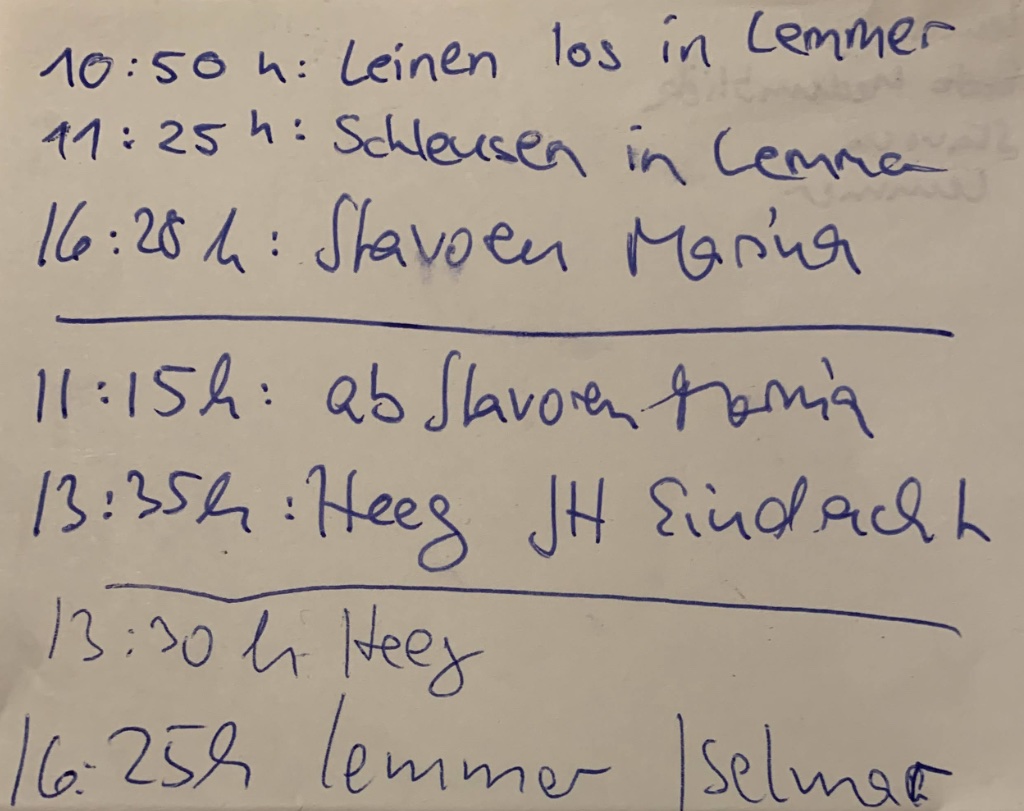 10:50 h: Leinen los in Lemmer
11:25 h: Schleusen in Lemmer
16:28 h: Stavoren Marina
11:15 h: ab Stavoren Marina
13:35 h: Heeg JH Eindracht
13:30 h Heeg
16:25 h Lemmer Iselmar